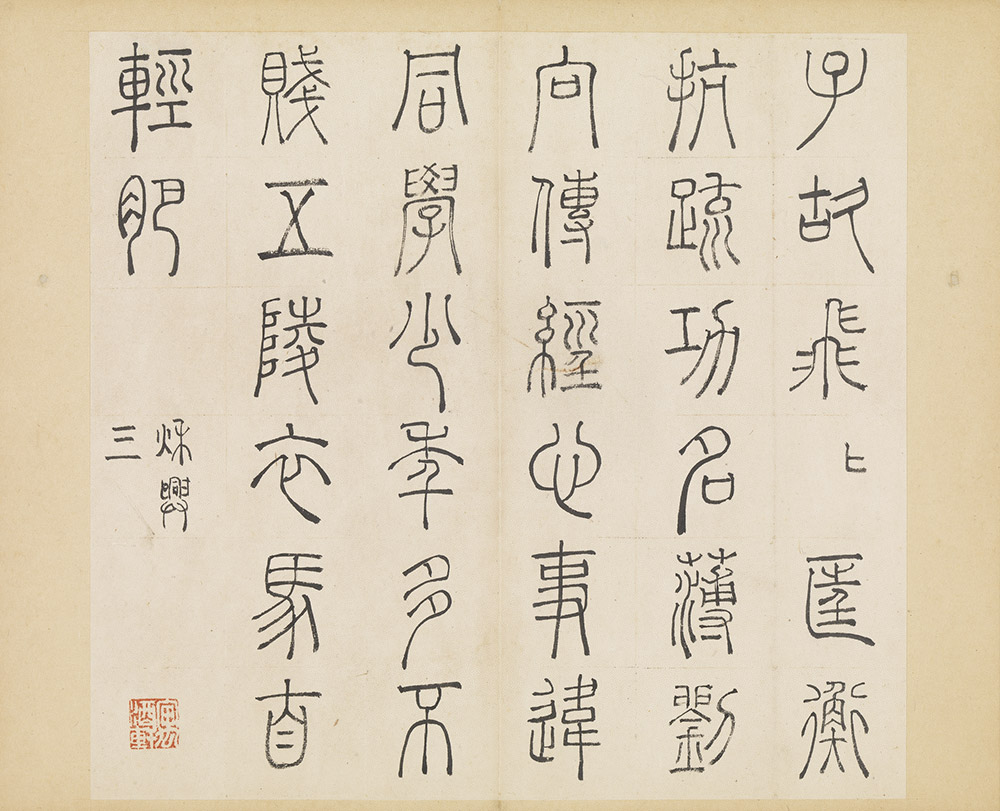 子故飛〻匡衡
抗疏功名薄劉
向傳經心事違
同學少年多不
賤五陵衣馬自
輕肥
秋興
三